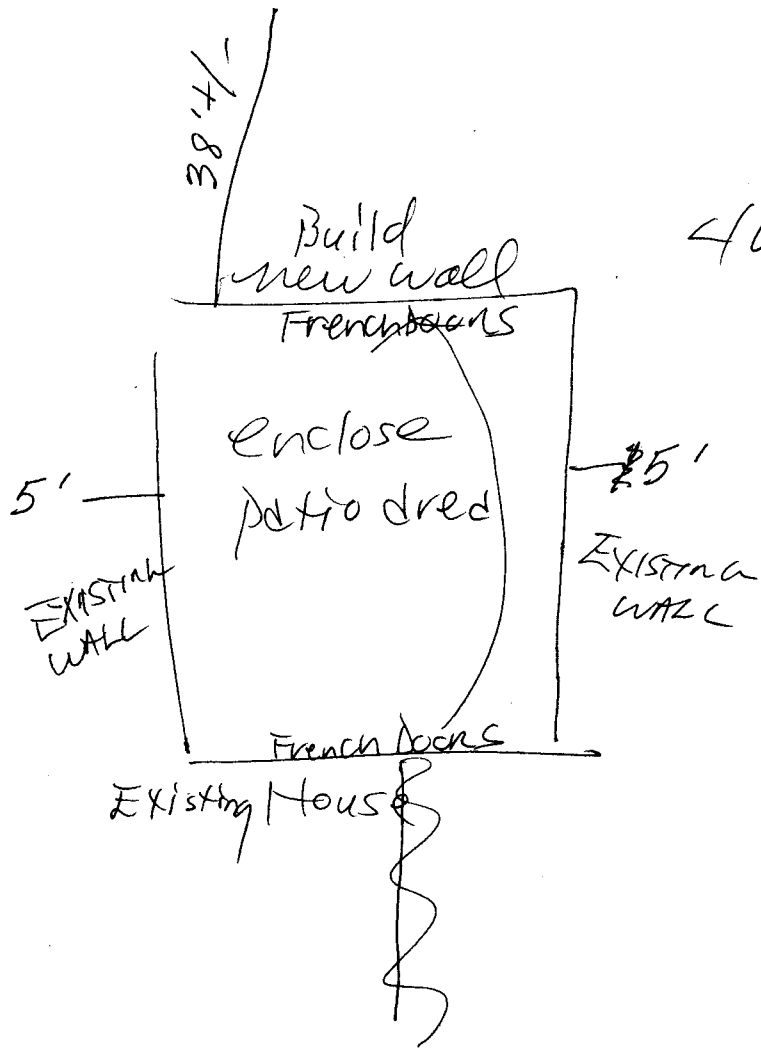 38'+/-
Build
new wall
French Doors
enclose
patio area
5'
5'
EXISTING
WALL
EXISTING
WALL
French Doors
Existing House